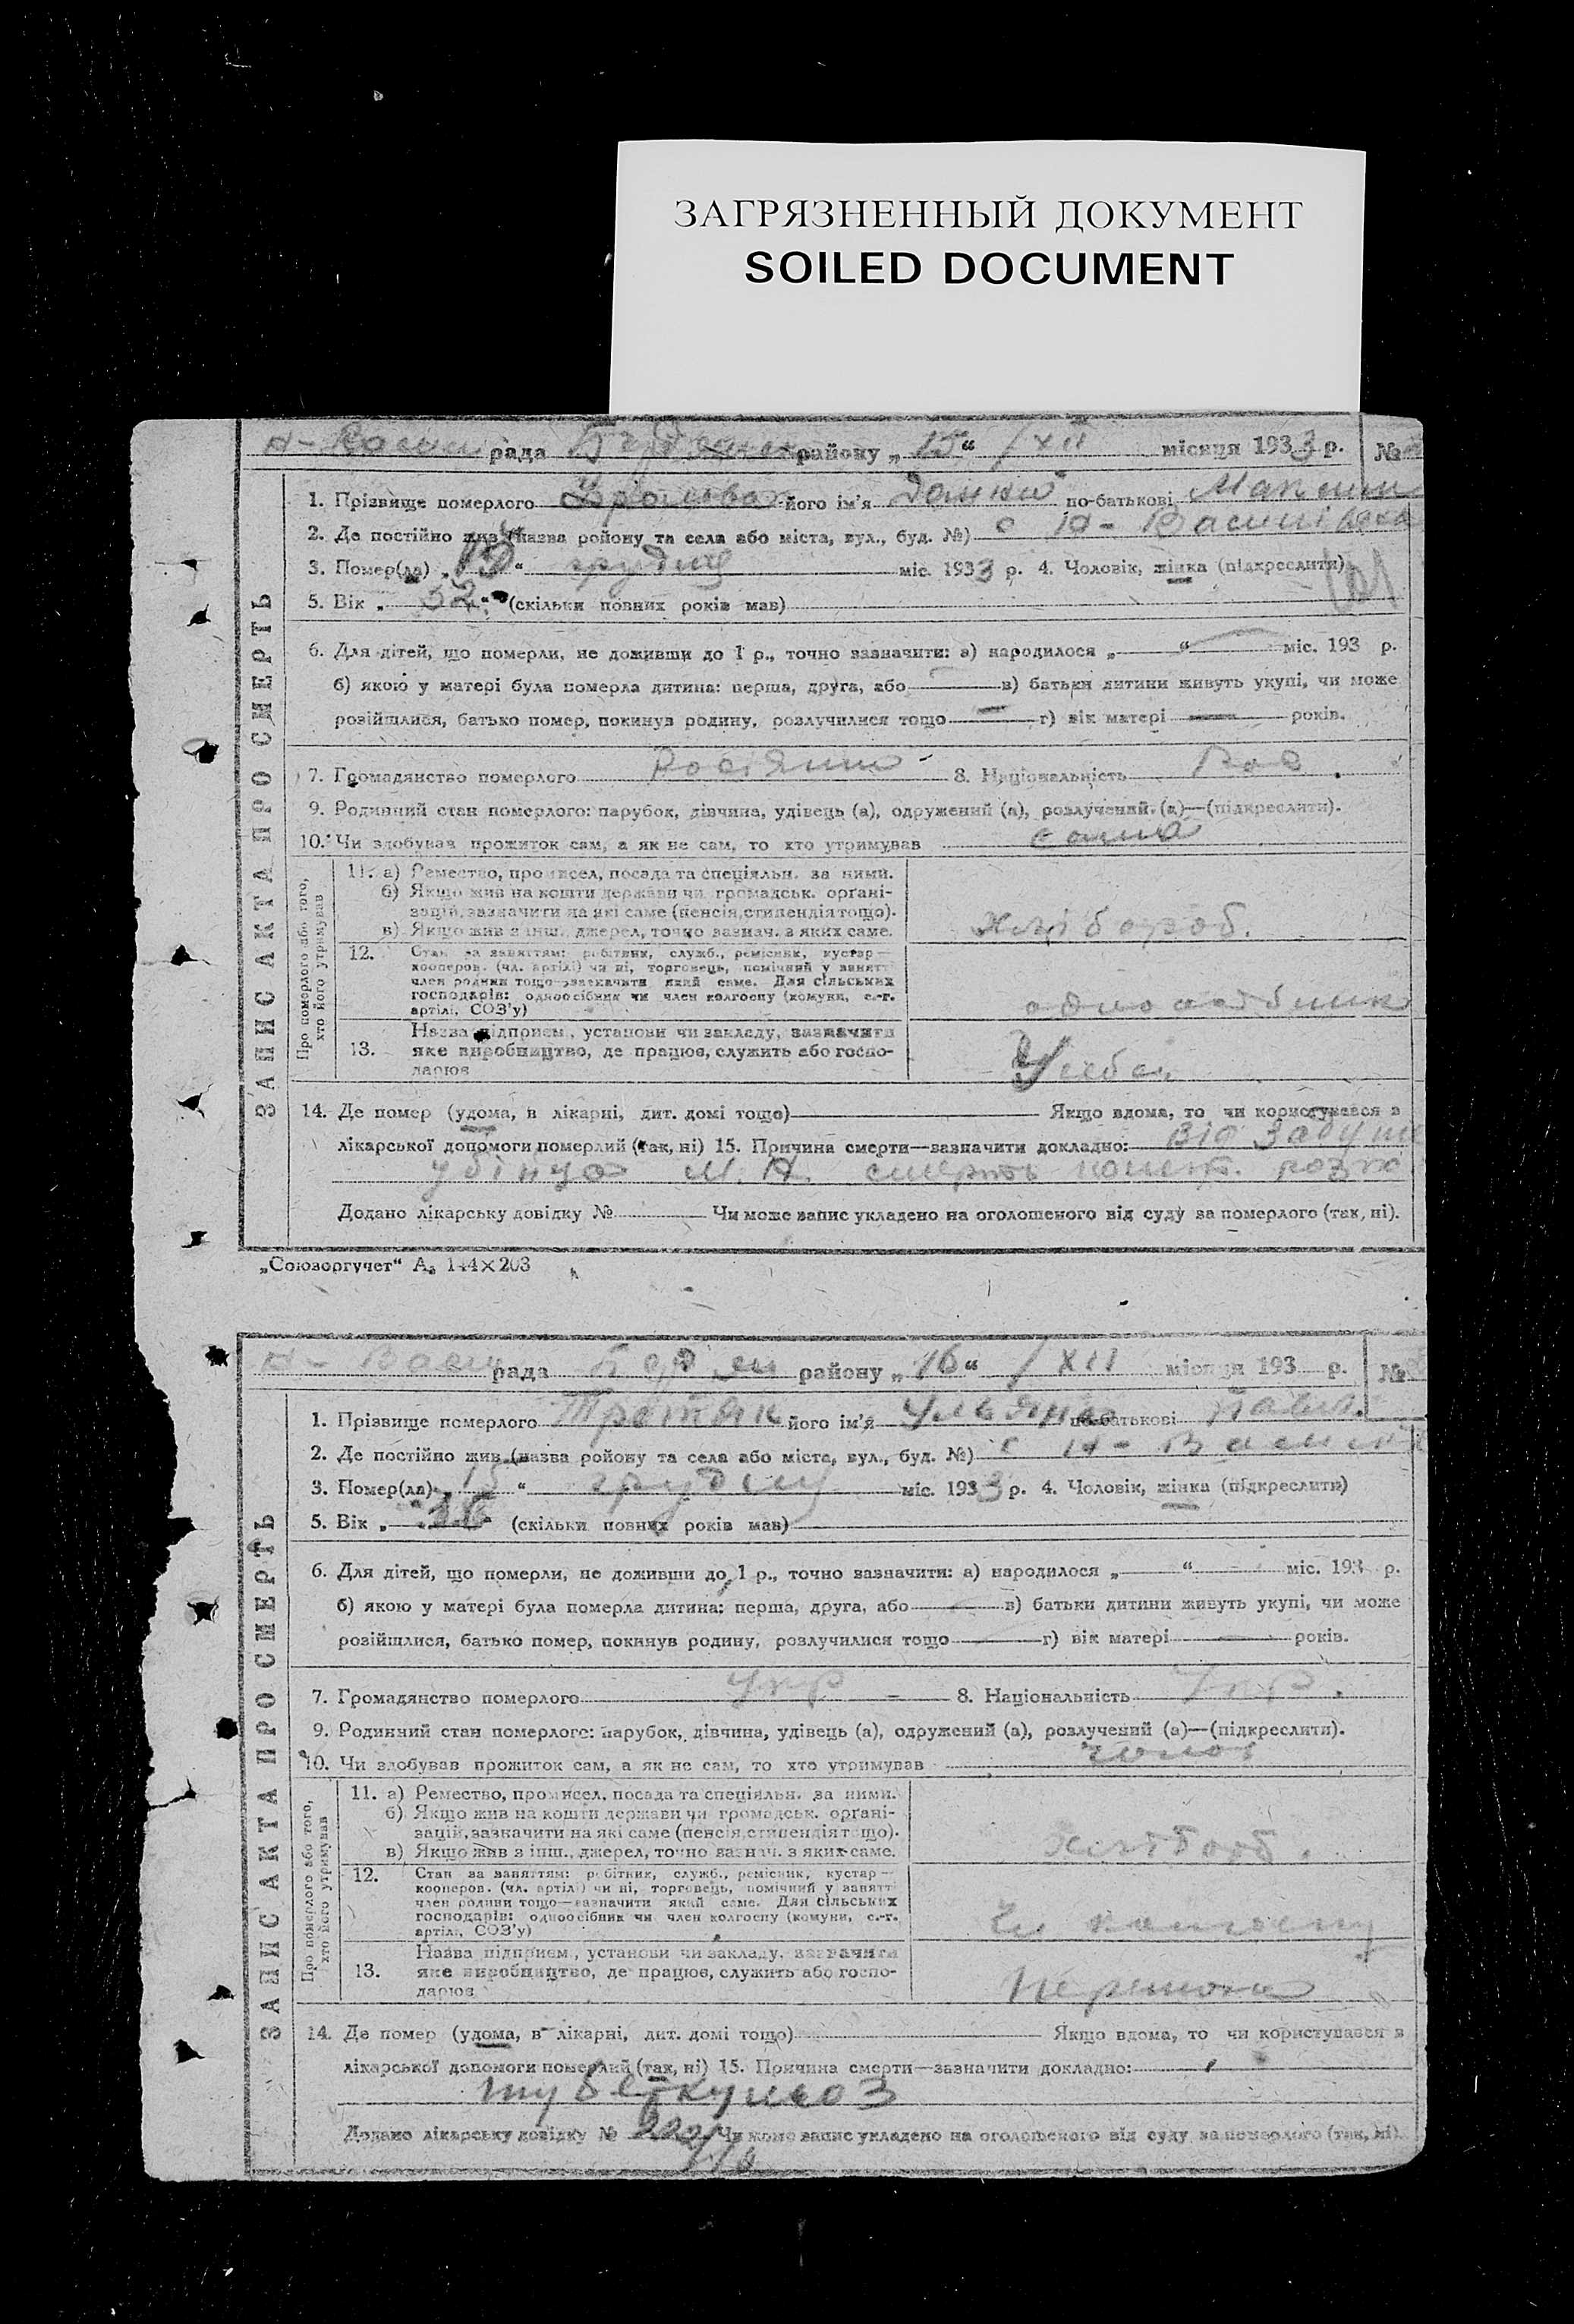 ЗАГРЯЗНЕННЫЙ ДОКУМЕНТ
SOILED DOCUMENT
рада району „15“ /XII місяця 1933 р. №
ЗАПИС АКТА ПРО СМЕРТЬ
1. Прізвище померлого його ім'я по-батькові
2. Де постійно жив (назва району та села або міста, вул., буд. №) с Н-Васил
3. Помер(ла) „15“ грудня міс. 1933 р. 4. Чоловік, жінка (підкреслити)
5. Вік „32“ (скільки повних років мав)
6. Для дітей, що померли, не доживши до 1 р., точно зазначити: а) народилося „ “ міс. 193 р.
б) якою у матері була померла дитина: перша, друга, або в) батьки дитини живуть укупі, чи може
розійшлися, батько помер, покинув родину, розлучилися тощо г) вік матері років.
7. Громадянство померлого 8. Національність Рос.
9. Родинний стан померлого: парубок, дівчина, удівець (а), одружений (а), розлучений (а)—(підкреслити).
10. Чи здобував прожиток сам, а як не сам, то хто утримував сама
Про померлого або того, хто його утримував
11. а) Ремество, промисел, посада та спеціяльн. за ними.
б) Якщо жив на кошти держави чи громадськ. органі-
зацій, зазначити на які саме (пенсія, стипендія тощо).
в) Якщо жив з інш. джерел, точно зазнач. з яких саме.
хлібороб.
12. Стан за заняттям: робітник, служб., ремісник, кустар—
кооперов. (чл. артілі) чи ні, торговець, помічний у занятт
член родини тощо—зазначити який саме. Для сільських
господарів: одноосібник чи член колгоспу (комуни, с.-г.
артілі, СОЗ'у)
одноосібник
13. Назва підприєм., установи чи закладу, зазначити
яке виробництво, де працює, служить або госпо-
дарює
14. Де помер (удома, в лікарні, дит. домі тощо) Якщо вдома, то чи користувався з
лікарської допомоги померлий (так, ні) 15. Причина смерти—зазначити докладно: від
смерть
Додано лікарську довідку № Чи може запис укладено на оголошеного від суду за померлого (так, ні).
„Союзоргучет“ А₅ 144×203
рада району „16“ /XII місяця 193 р. №
ЗАПИС АКТА ПРО СМЕРТЬ
1. Прізвище померлого Третяк його ім'я Уляна по-батькові Павл.
2. Де постійно жив (назва району та села або міста, вул., буд. №) с Н-Васил
3. Помер(ла) „15“ грудня міс. 1933 р. 4. Чоловік, жінка (підкреслити)
5. Вік „ “ (скільки повних років мав)
6. Для дітей, що померли, не доживши до 1 р., точно зазначити: а) народилося „ “ міс. 193 р.
б) якою у матері була померла дитина: перша, друга, або в) батьки дитини живуть укупі, чи може
розійшлися, батько помер, покинув родину, розлучилися тощо г) вік матері років.
7. Громадянство померлого Укр 8. Національність Укр.
9. Родинний стан померлого: парубок, дівчина, удівець (а), одружений (а), розлучений (а)—(підкреслити).
10. Чи здобував прожиток сам, а як не сам, то хто утримував
Про померлого або того, хто його утримував
11. а) Ремество, промисел, посада та спеціяльн. за ними.
б) Якщо жив на кошти держави чи громадськ. органі-
зацій, зазначити на які саме (пенсія, стипендія тощо).
в) Якщо жив з інш. джерел, точно зазнач. з яких саме.
12. Стан за заняттям: робітник, служб., ремісник, кустар—
кооперов. (чл. артілі) чи ні, торговець, помічний у занятт
член родини тощо—зазначити який саме. Для сільських
господарів: одноосібник чи член колгоспу (комуни, с.-г.
артілі, СОЗ'у)
Чл колгоспу
13. Назва підприєм., установи чи закладу, зазначити
яке виробництво, де працює, служить або госпо-
дарює
14. Де помер (удома, в лікарні, дит. домі тощо) Якщо вдома, то чи користувався з
лікарської допомоги померлий (так, ні) 15. Причина смерти—зазначити докладно:
туберкульоз
Додано лікарську довідку № Чи може запис укладено на оголошеного від суду за померлого (так, ні).